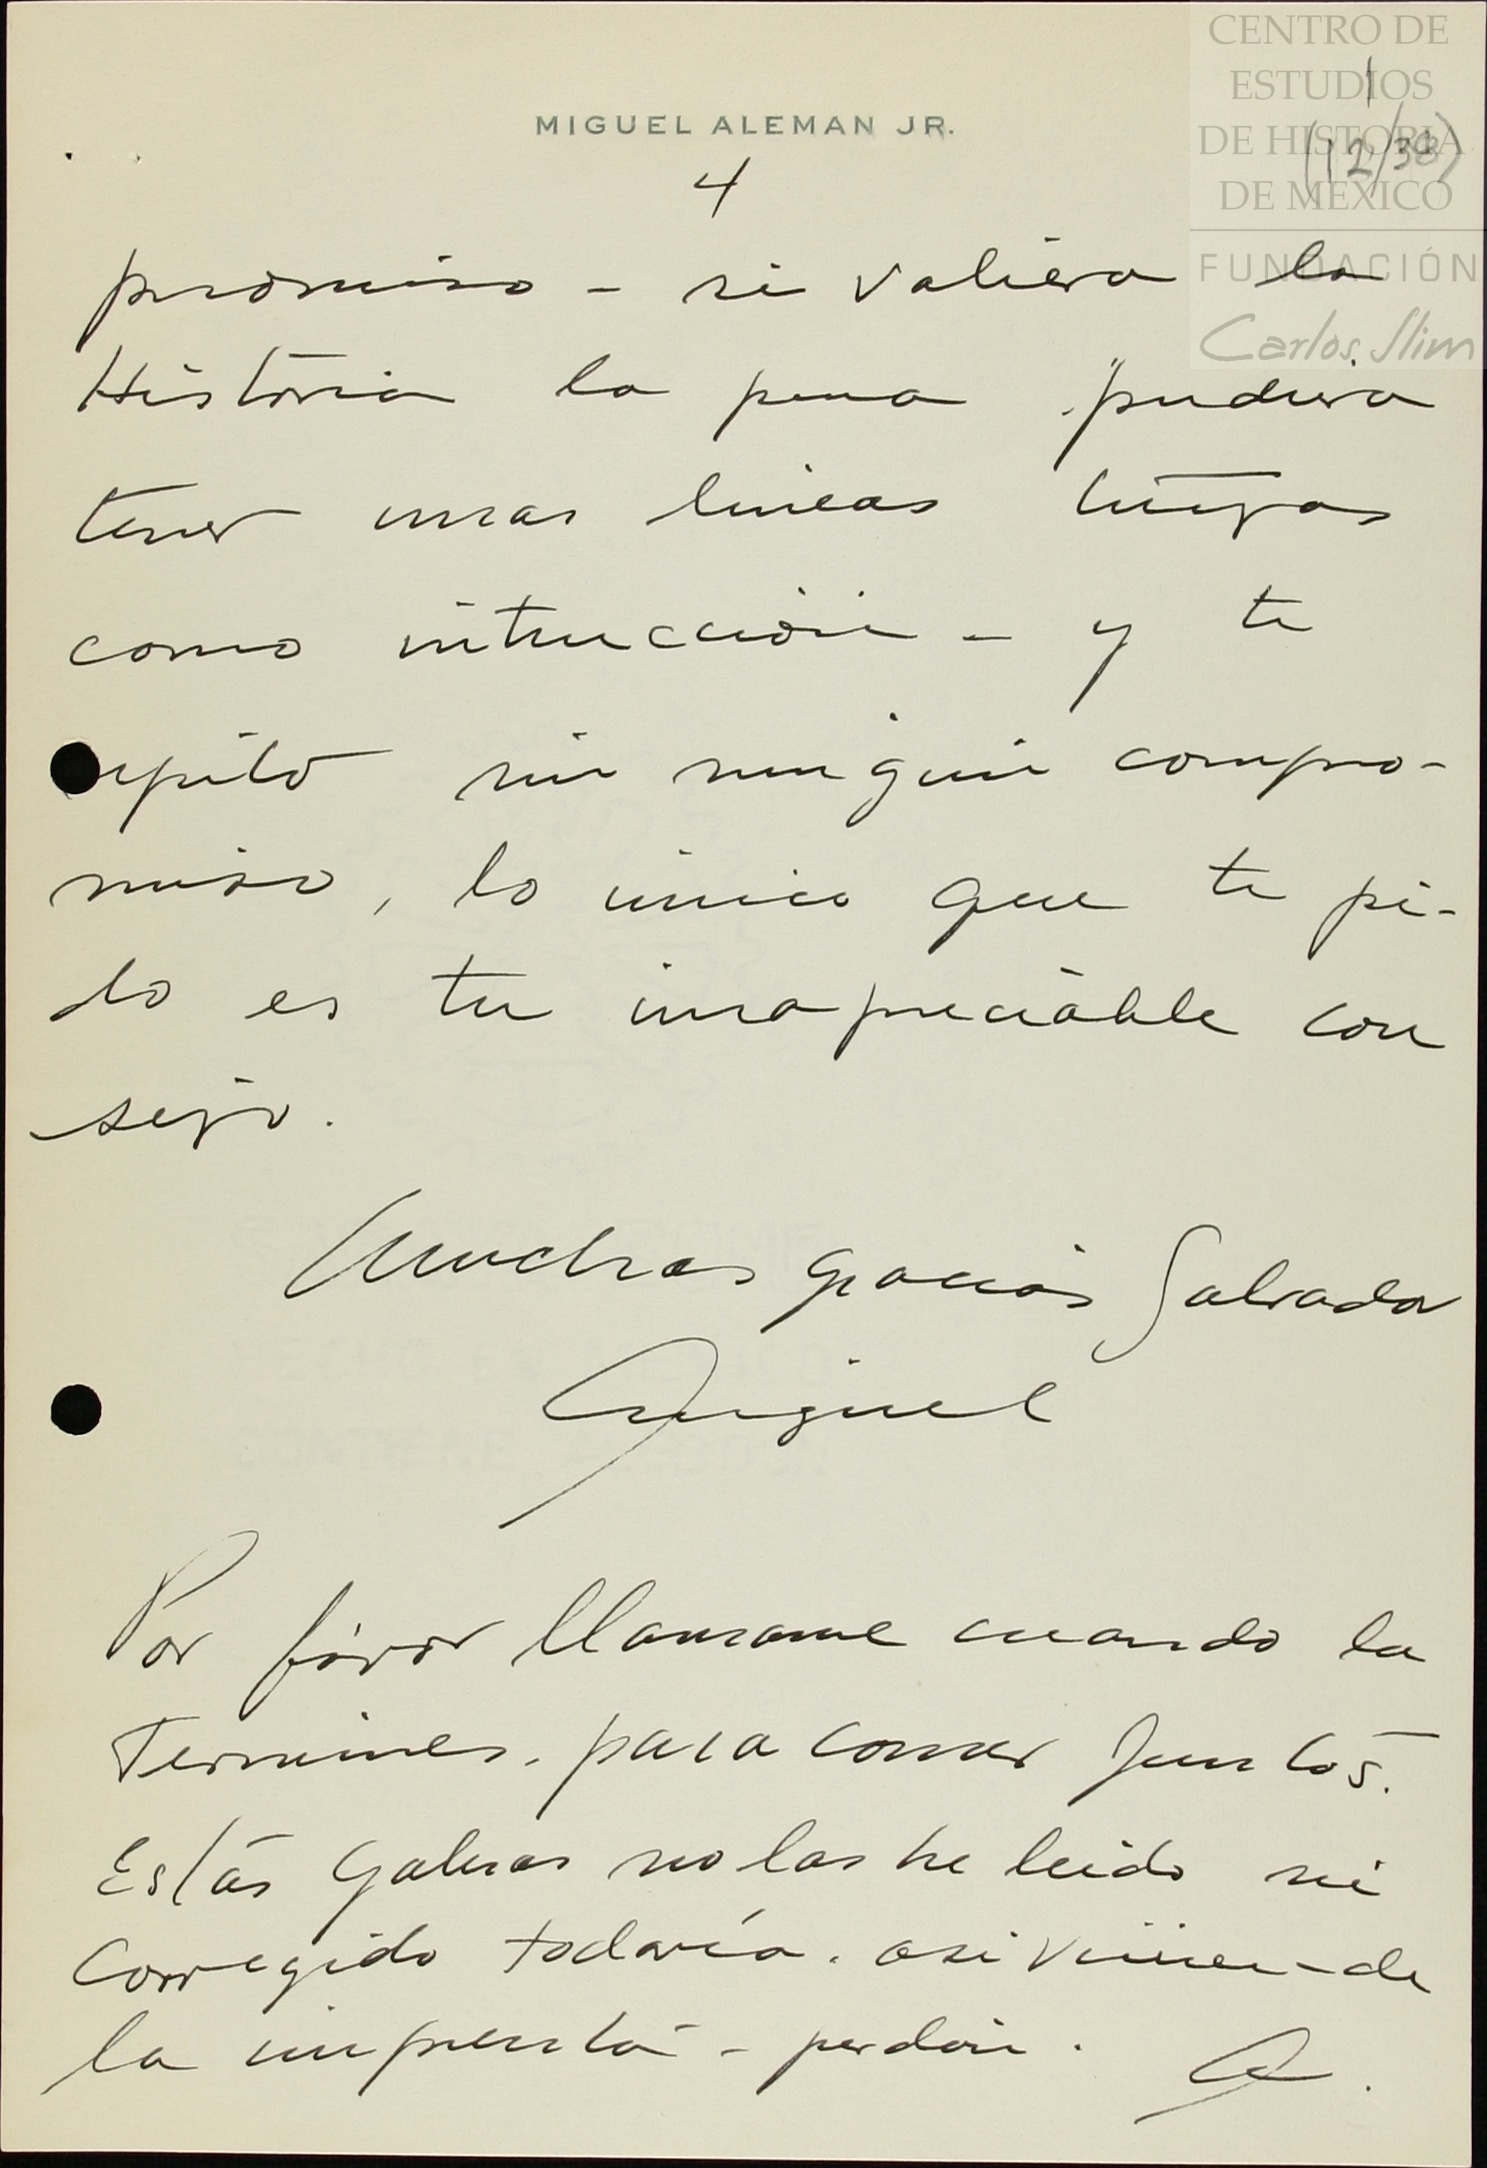 CENTRO DE
ESTUDIOS
DE HISTORIA
DE MEXICO
FUNDACIÓN
Carlos Slim
MIGUEL ALEMAN JR.
4
promiso - si valiera la
Historia la pena pudiera
tener unas lineas tuyas
como intrucción - y te
repito sin ningún compro-
miso, lo unico que te pi-
do es tu inapreciable con
sejo.
Muchas gracias Salvador
Miguel
Por favor llamame cuando la
Termines. para comer Juntos.
Estas Galeras no las he leido ni
Corregido todavía. asi vinieron de
la imprenta - perdón.